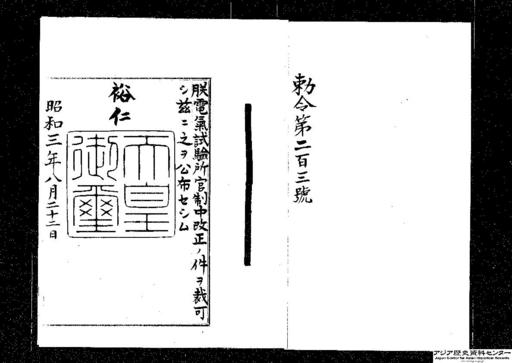 勅令第二百三號
朕電氣試驗所官制中改正ノ件ヲ裁可
シ茲ニ之ヲ公布セシム
裕仁
天皇
御璽
昭和三年八月二十二日
アジア歴史資料センター
Japan Center for Asian Historical Records